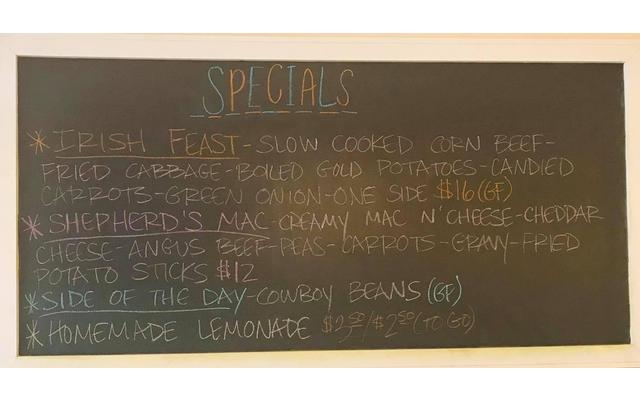 SPECIALS
* IRISH FEAST - SLOW COOKED CORN BEEF -
FRIED CABBAGE - BOILED GOLD POTATOES - CANDIED
CARROTS - GREEN ONION - ONE SIDE $16 (GF)
* SHEPHERD'S MAC - CREAMY MAC N' CHEESE - CHEDDAR
CHEESE - ANGUS BEEF - PEAS - CARROTS - GRAVY - FRIED
POTATO STICKS $12
* SIDE OF THE DAY - COWBOY BEANS (GF)
* HOMEMADE LEMONADE /$2.50 (TO GO)